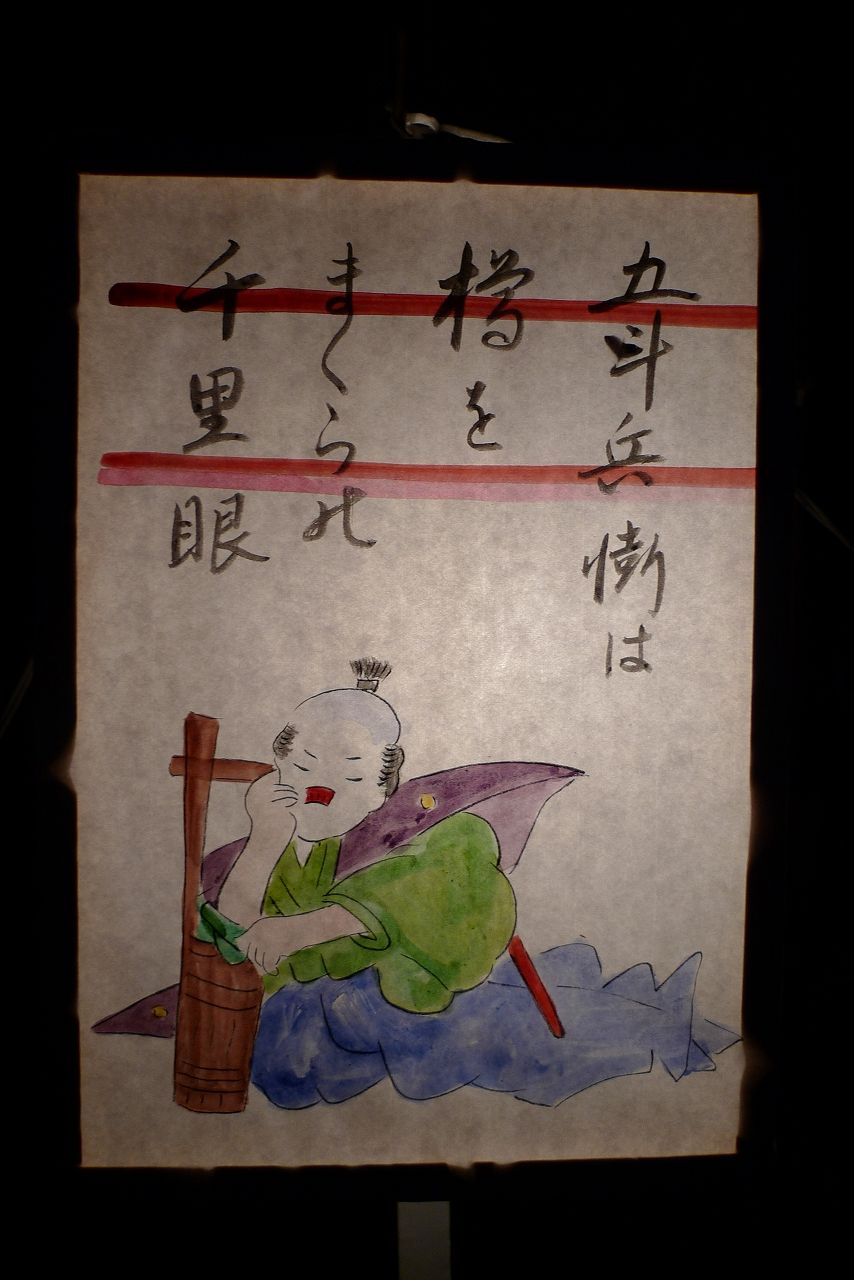 五斗兵衛は
樽を
まくらの
千里眼